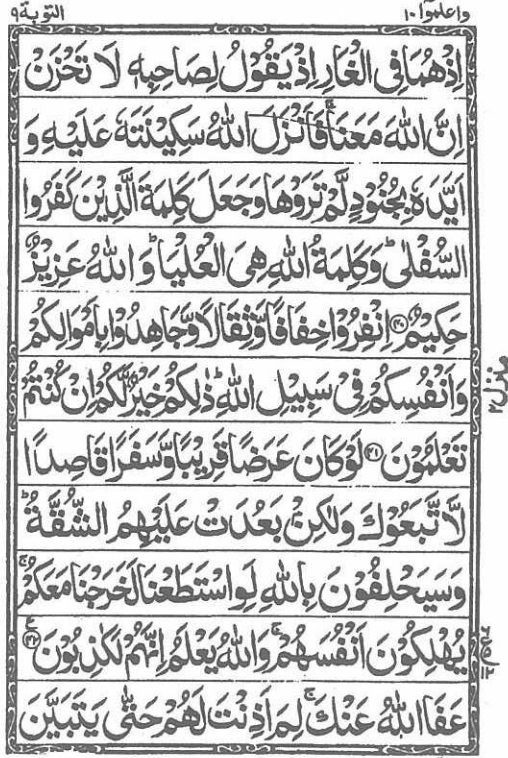 واعلموٓا ١٠ التوبة ٩
اِذْ هُمَا فِی الْغَارِ اِذْ یَقُوْلُ لِصَاحِبِهٖ لَا تَحْزَنْ
اِنَّ اللّٰهَ مَعَنَا ۚ فَاَنْزَلَ اللّٰهُ سَكِیْنَتَهٗ عَلَیْهِ وَ
اَیَّدَهٗ بِجُنُوْدٍ لَّمْ تَرَوْهَا وَجَعَلَ كَلِمَةَ الَّذِیْنَ كَفَرُوا
السُّفْلٰی ؕ وَكَلِمَةُ اللّٰهِ هِیَ الْعُلْیَا ؕ وَاللّٰهُ عَزِیْزٌ
حَكِیْمٌ ﴿۴۰﴾ اِنْفِرُوْا خِفَافًا وَّثِقَالًا وَّجَاهِدُوْا بِاَمْوَالِكُمْ
وَاَنْفُسِكُمْ فِیْ سَبِیْلِ اللّٰهِ ؕ ذٰلِكُمْ خَیْرٌ لَّكُمْ اِنْ كُنْتُمْ
منزل ۲
تَعْلَمُوْنَ ﴿۴۱﴾ لَوْ كَانَ عَرَضًا قَرِیْبًا وَّسَفَرًا قَاصِدًا
لَّا تَّبَعُوْكَ وَلٰكِنْۢ بَعُدَتْ عَلَیْهِمُ الشُّقَّةُ ؕ
وَسَیَحْلِفُوْنَ بِاللّٰهِ لَوِ اسْتَطَعْنَا لَخَرَجْنَا مَعَكُمْ ۚ
یُهْلِكُوْنَ اَنْفُسَهُمْ ۚ وَاللّٰهُ یَعْلَمُ اِنَّهُمْ لَكٰذِبُوْنَ ﴿۴۲﴾ ع
عَفَا اللّٰهُ عَنْكَ ۚ لِمَ اَذِنْتَ لَهُمْ حَتّٰی یَتَبَیَّنَ